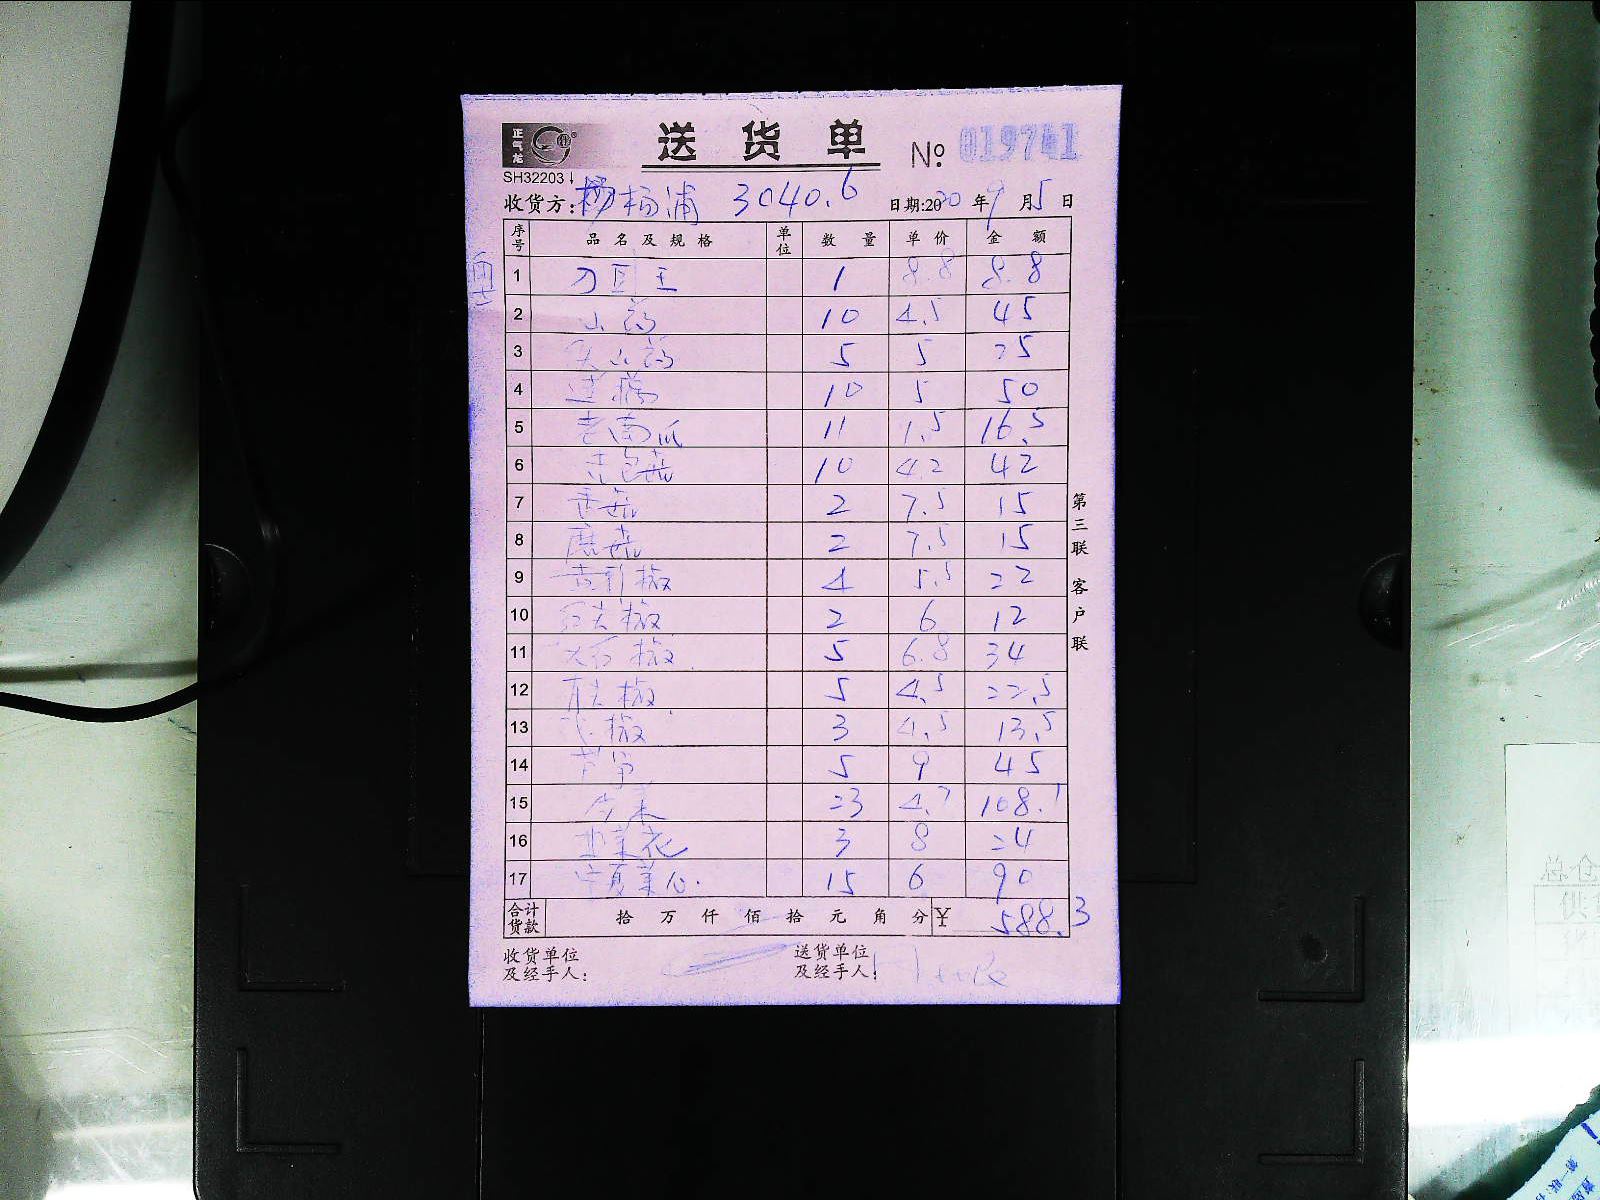 正气龙
送货单 № 019741
SH32203
收货方: 杨杨浦 3040.6 日期:2020年9月5日
序号 品名及规格 单位 数量 单价 金额
1 刀豆王 1 8.8 8.8
2 山药 10 4.5 45
3 山药 5 5 25
4 10 5 50
5 老南瓜 11 1.5 16.5
6 10 4.2 42
7 香菇 2 7.5 15
8 蘑菇 2 7.5 15
9 黄彩椒 4 5.5 22
10 红尖椒 2 6 12
11 椒 5 6.8 34
12 尖椒 5 4.5 22.5
13 椒 3 4.5 13.5
14 芦笋 5 9 45
15 23 4.7 108.1
16 韭菜花 3 8 24
17 宁夏菜心 15 6 90
合计货款 拾万仟佰拾元角分 ¥ 588.3
收货单位及经手人: 送货单位及经手人:
第三联 客户联